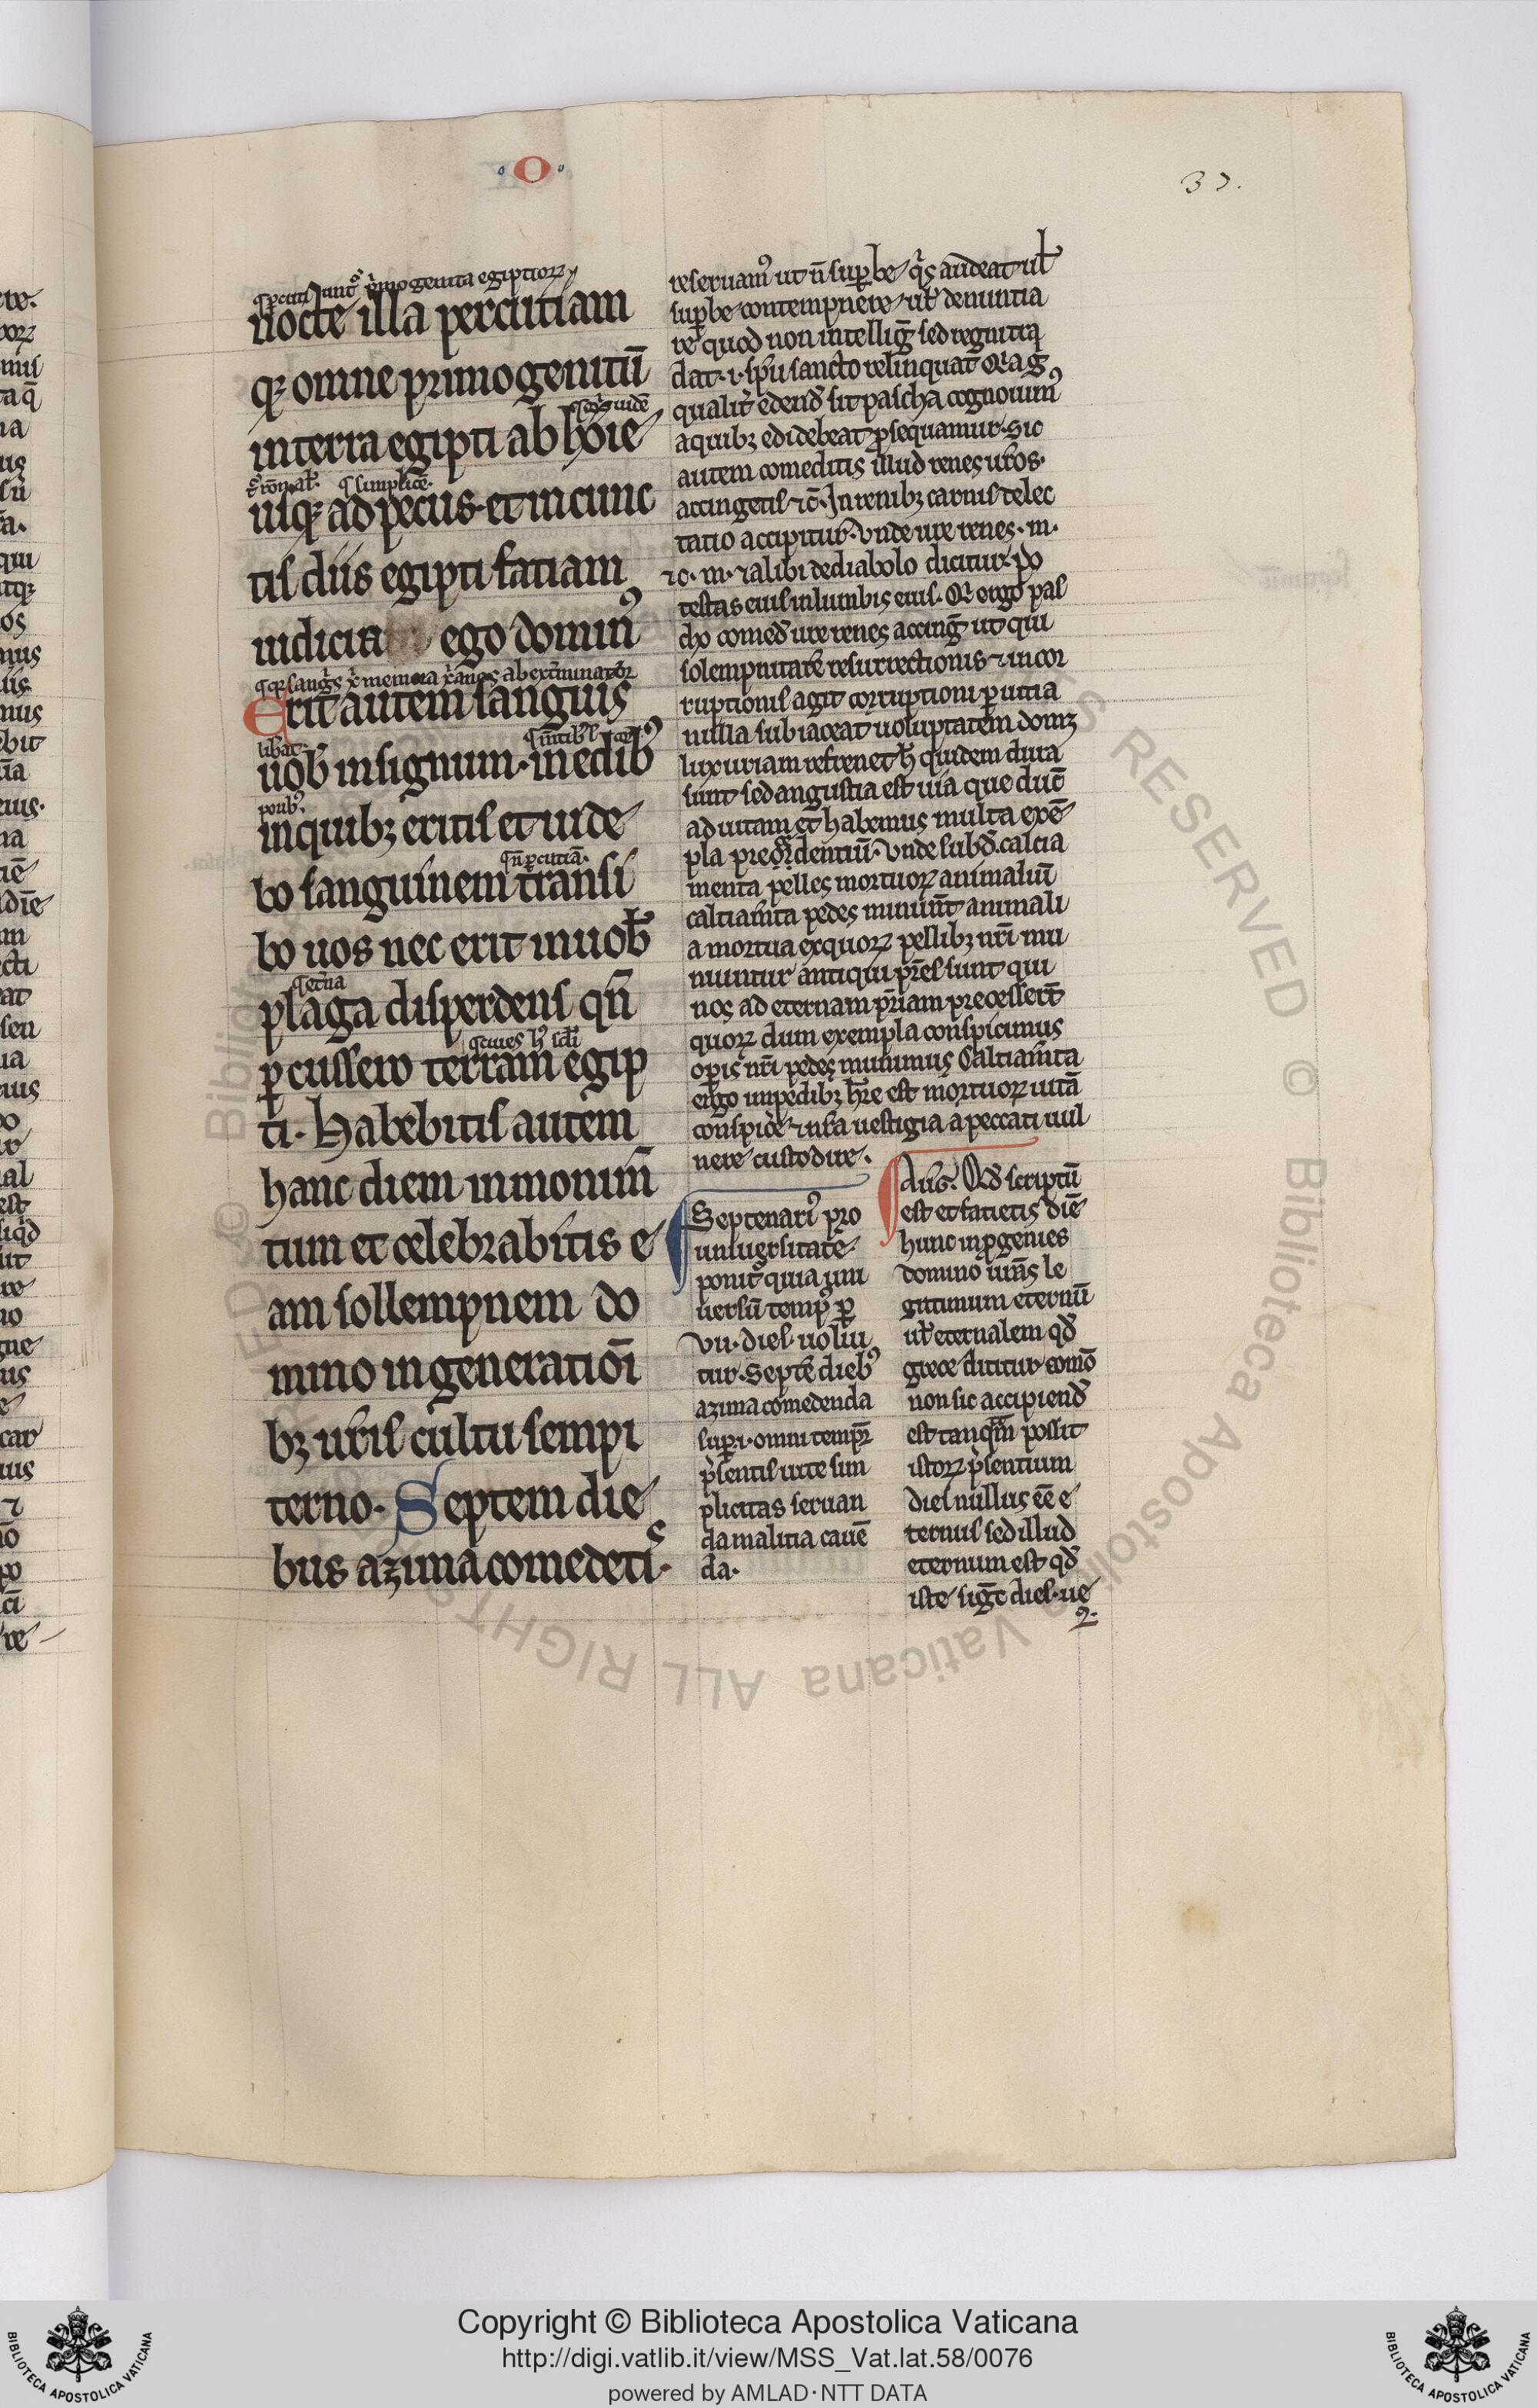 · O ·
37.
⁊ ꝑcuti sunt primogenita egiptioꝝ
nocte illa percutiam
qꝫ omne primogenitū
in terra egipti ab hoīe
⁊ simplicē.
usqꝫ ad pecus. et in cunc
tis diis egipti fatiam
iudicia ego dominꝰ
Erit autem sanguis
uob̄ in signum. in edibꝰ
in quibꝫ eritis et uide
⁊ n̄ ꝑcutiā.
bo sanguinem transi
bo uos nec erit in uob̄
⁊ eterna
plaga disperdens qn̄
ꝑcussero terram egip
ti. Habebitis autem
hanc diem in monim̄
tum et celebrabitis e
am sollempnem do
mino in generatiōi
bꝫ uris̄ cultu sempi
terno. Septem die
bus azima comedetis.
reseruamꝰ ut n̄ suꝑbe qͥs audeat ul̄
suꝑbe contempnere ul̄ denuntia
re quod non intelliḡ sed
dat. i. sp̄u sancto relinquat
qualit̄ edend̄ sit pascha cognouimꝰ
a quibꝫ edi debeat ꝓsequamur. Sic
autem comeditis illud renes ur̄os.
accingetis ⁊c̄. In renibꝫ carnis delec
tatio accipitur. Unde ure renes. m.
⁊ c. m. ⁊ alibi de diabolo dicitur. po
testas eius in lumbis eius. Qi ergo pas
cha comed̄ ure renes accinḡ ut qui
solempnitatē resurrectionis ⁊ incor
ruptionis agit corruptioni ꝑ uitia
nulla subiaceat uoluptatem domꝫ
luxuriam refrenet h̄ quidem dura
sunt sed angustia est uia que duc̄
ad uitam et habemus multa exē
pla precedentiū. Unde subd̄. calcia
menta pelles mortuoꝝ animaliū
calciam̄ta pedes muniūt animali
a mortua ex quoꝝ pellibꝫ nr̄i mu
niuntur antiqui pr̄es sunt qui
nos ad eternam pr̄iam precesser̄t
quoꝝ dum exempla conspicimus
oꝑis nr̄i pedes munimus Calciam̄ta
ergo in pedibꝫ hr̄e est mortuoꝝ uitā
conspicere ⁊ nr̄a uestigia a peccati uul
nere custodire.
Septenariꝰ pro
uniuersitate
ponit̄ quia uni
uersū tempꝰ ꝑ
vii. dies uolui
tur. Septē diebꝰ
azima comedenda
suꝑ. i. omni tempꝛ̄
pͥsentis uite sim
plicitas seruan
da malitia cauē
da.
Auḡ. Qd̄ scriptū
est et facietis diē
hunc in ꝓgenies
domino uras̄ le
gitimum eternū
ul̄ eternalem qd̄
grece dicitur
non sic accipiend̄
est tanqͣm possit
istoꝝ pͥsentium
dies nullus ēē e
ternus sed illud
eternum est qd̄
iste siḡt dies. ue
Copyright © Biblioteca Apostolica Vaticana
http://digi.vatlib.it/view/MSS_Vat.lat.58/0076
powered by AMLAD · NTT DATA
BIBLIOTECA APOSTOLICA VATICANA
BIBLIOTECA APOSTOLICA VATICANA